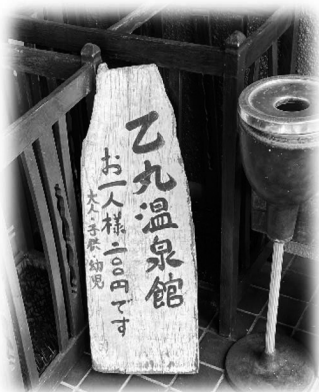 乙丸温泉館
お一人様二〇〇円です
大人・子供・幼児